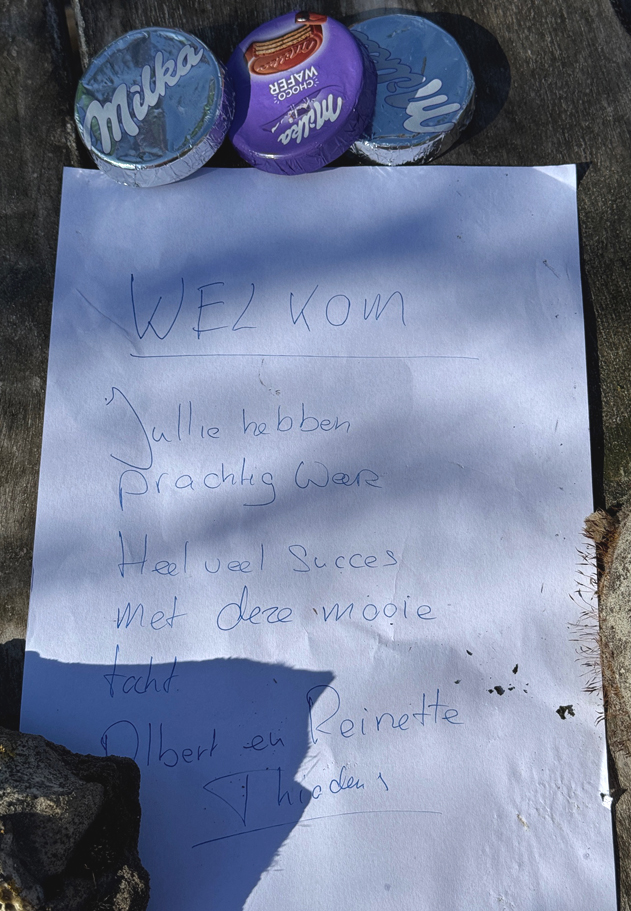 Milka
Milka
CHOCO
WAFER
WELKOM
Jullie hebben
prachtig weer
Heel veel Succes
met deze mooie
tocht.
Albert en Reinette